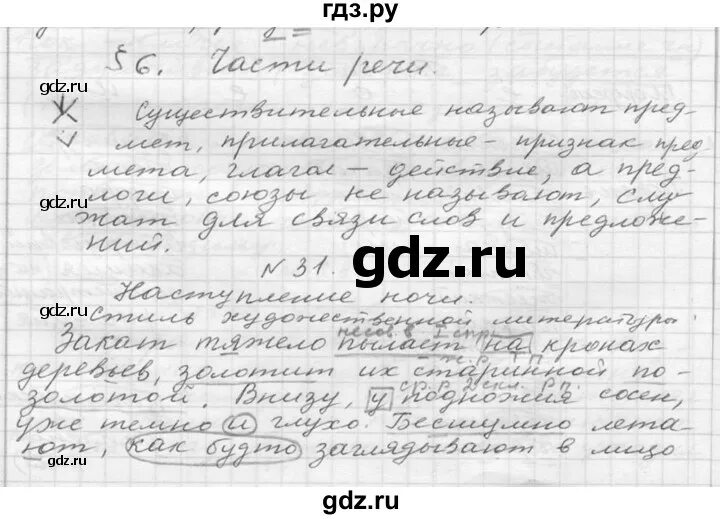 гдз.ру
§ 6. Части речи.
Существительные называют пред-
мет, прилагательные - признак пред
мета, глагол - действие, а пред-
логи, союзы не называют, слу
жат для связи слов и предложе-
ний.
gdz.ru
N 31.
Наступление ночи.
Стиль художественной литературы
несов. в. I спр.
Закат тяжело пылает на кронах
ж.р. Т.П.
деревьев, золотит их старинной по-
ср.р. 2 скл. Р.п.
золотой. Внизу, у подножия сосен,
уже темно и глухо. Бесшумно лета-
ют, как будто заглядывают в лицо
gdz.ru